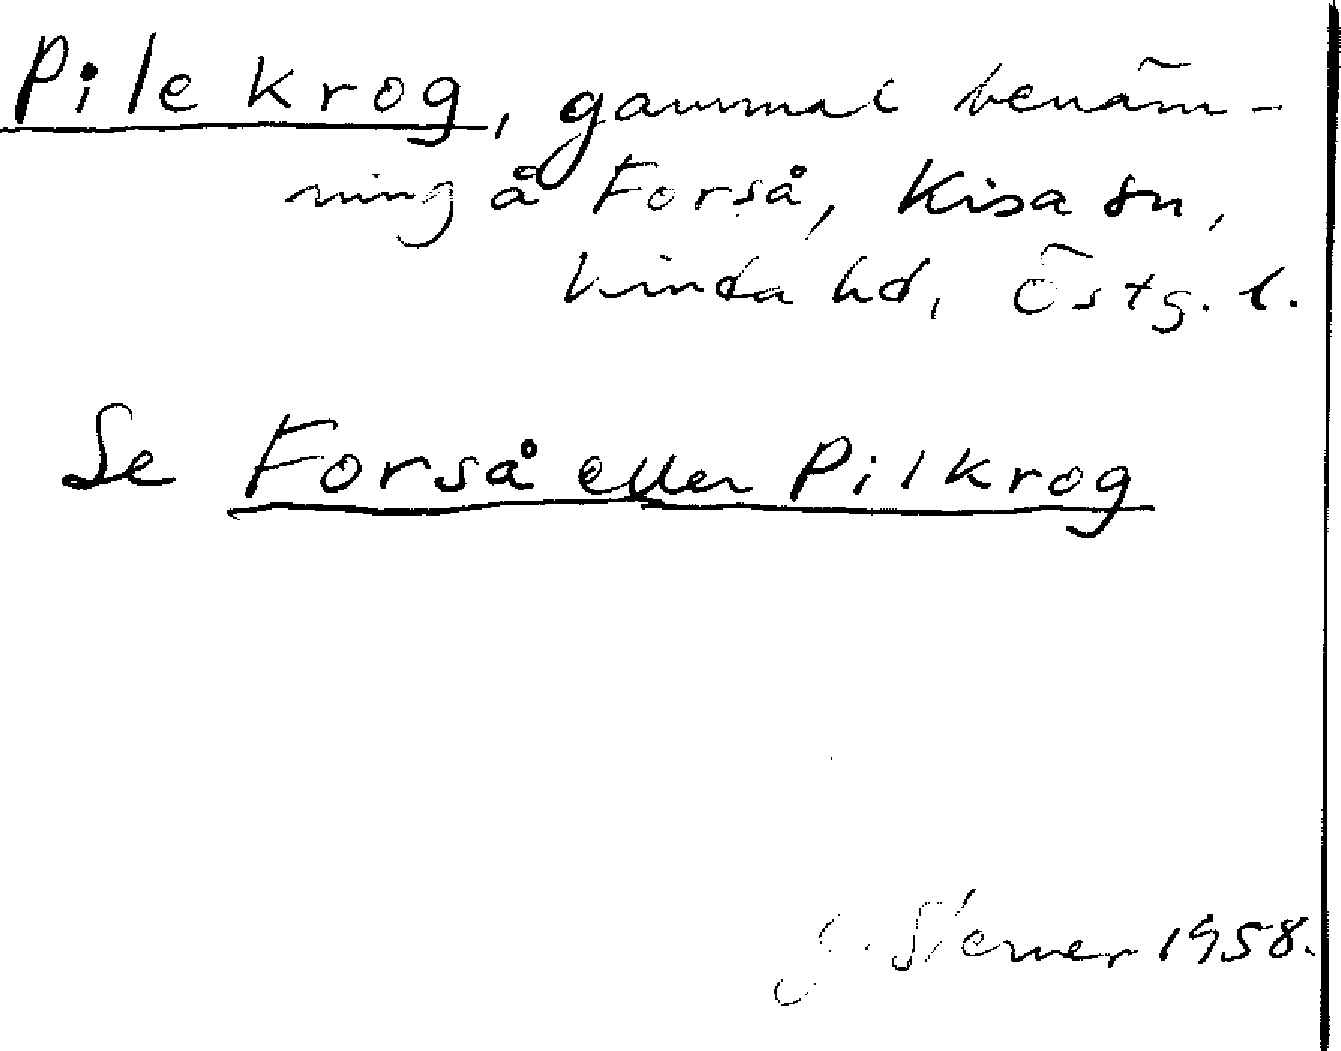 Pilekrog, gammal benäm-
ning å Forså, Kisa sn,
Kinda hd, Östg. l.
Se Forså eller Pilkrog
J. Sterner 1958.